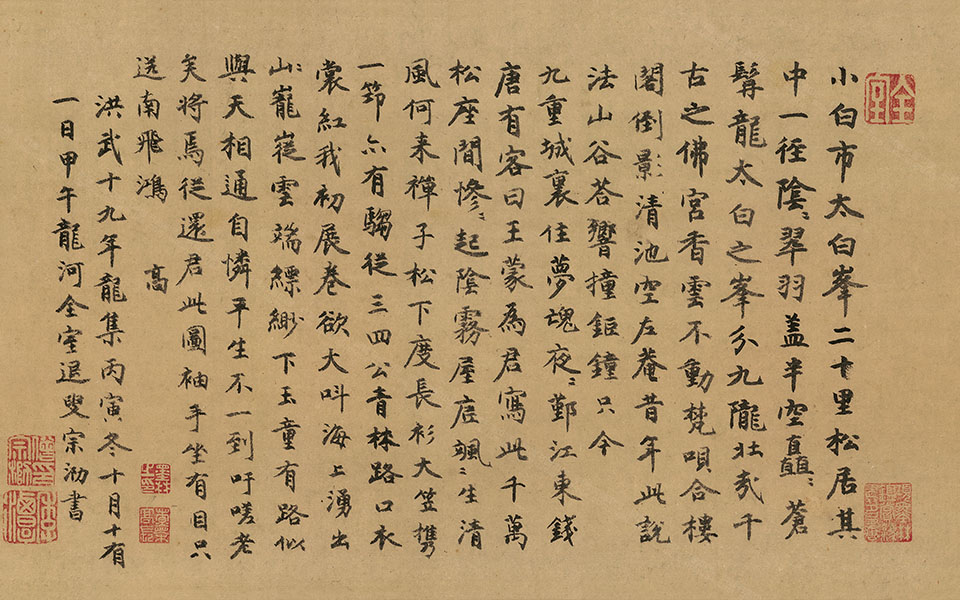 小白市太白峯二十里松居其
中一徑陰〻翠羽盖半空直顛〻蒼
髯龍太白之峯分九隴壯哉千
古之佛宮香雲不動梵唄合樓
閣倒影清池空左菴昔年此說
法山谷荅響撞鉅鐘只今
九重城裏住夢魂夜〻鄞江東錢
唐有客曰王蒙為君寫此千萬
松座間慘〻起陰霧屋底颯〻生清
風何来禪子松下度長衫大笠携
一笻亦有騶從三四公青林路口衣
裳紅我初展卷欲大呌海上湧出
山〻巃嵸雲端縹緲下玉童有路似
與天相通自憐平生不一到吁嗟老
矣將焉從還君此圖袖手坐有目只
送南飛鴻 高
洪武十九年龍集丙寅冬十月十有
一日甲午龍河全室退叟宗泐書
全室